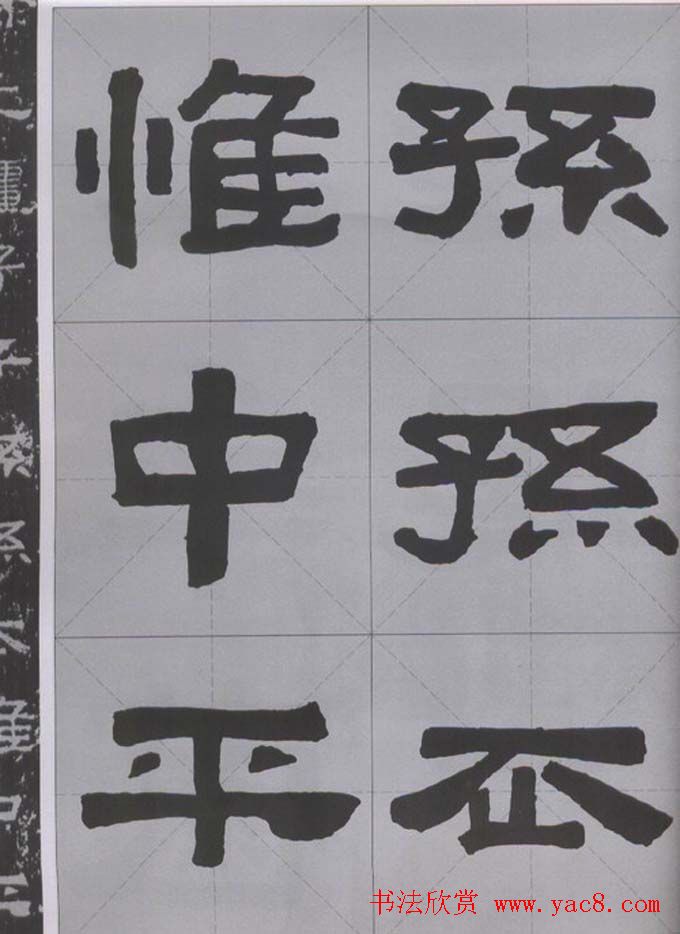 孫孫
惟中平
书法欣赏 www.yac8.com